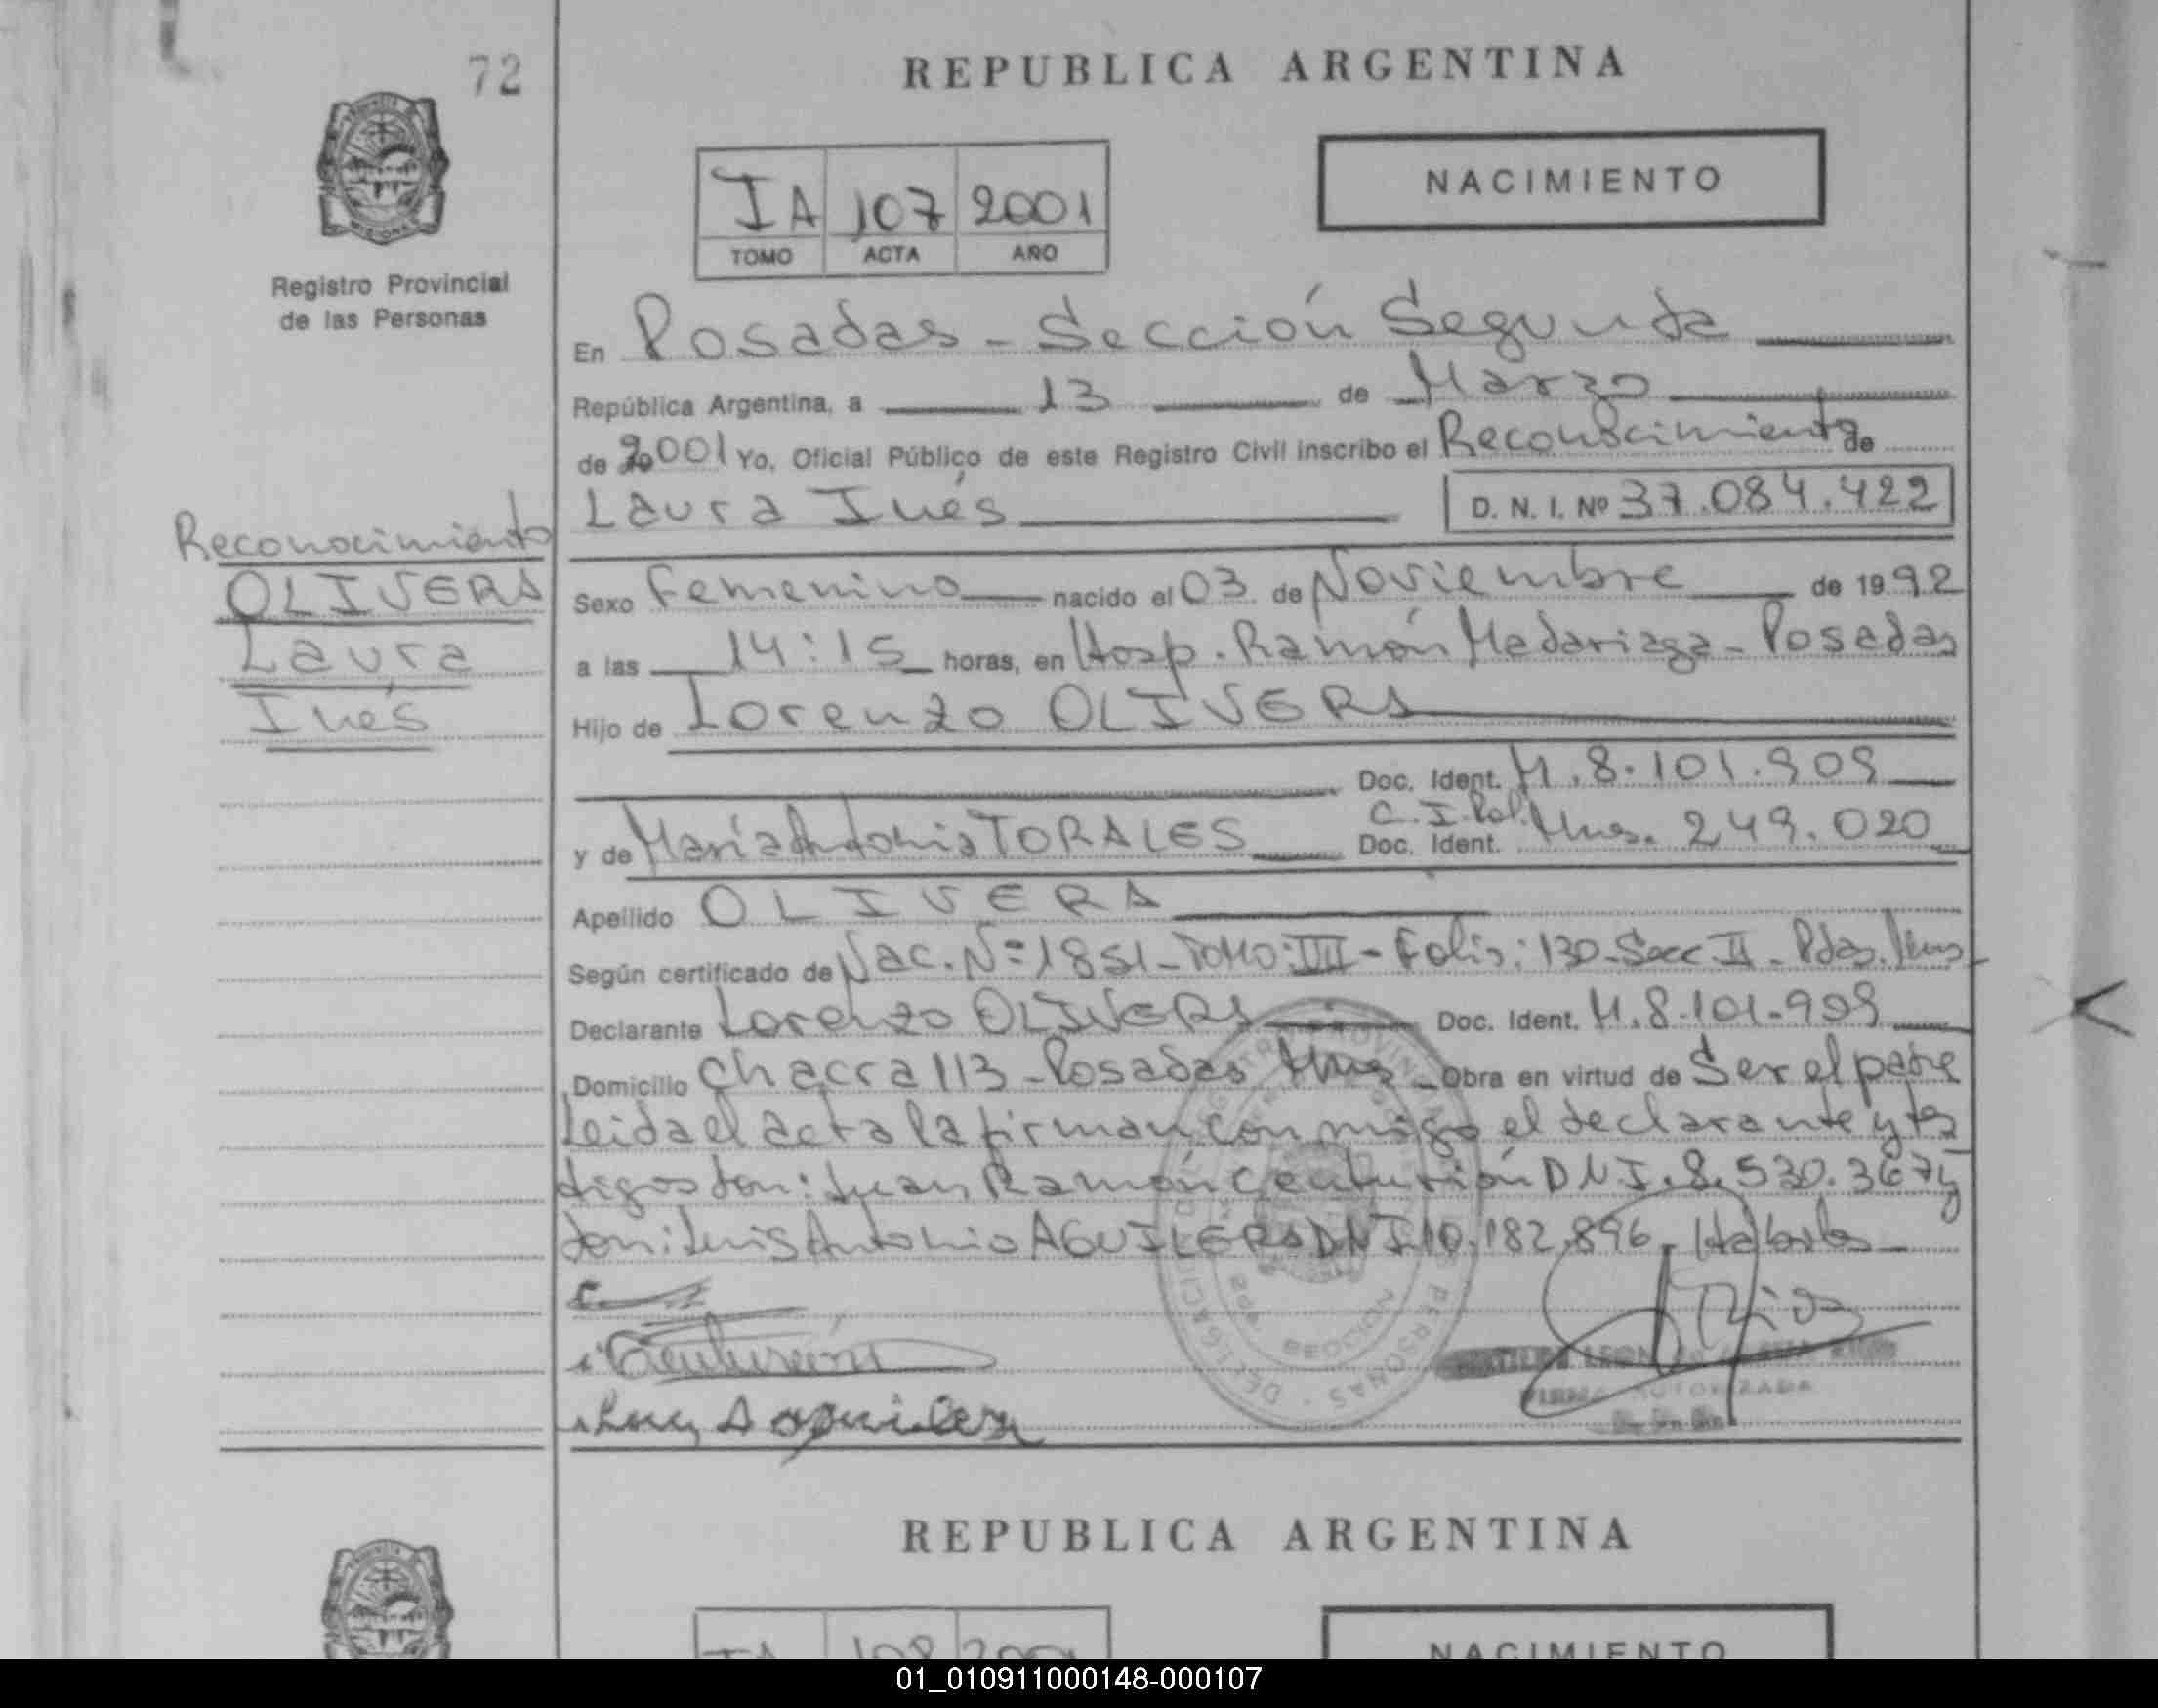 72
REPUBLICA ARGENTINA
NACIMIENTO
IA 107 2001
TOMO ACTA AÑO
Registro Provincial
de las Personas
En Posadas - Sección Segunda
República Argentina, a 13 de Marzo
de 2001 Yo, Oficial Público de este Registro Civil inscribo el Reconocimiento de
Laura Inés D. N. I. Nº 37.084.422
Reconocimiento
OLIVERA
Laura
Inés
Sexo Femenino nacido el 03 de Noviembre de 1992
a las 14:15 horas, en Hosp. Ramón Madariaga - Posadas
Hijo de Lorenzo OLIVERA
Doc. Ident. M. 8.101.909
C. I. Pol.
y de María Antonia TORALES Doc. Ident. Mnes. 249.020
Apellido OLIVERA
Según certificado de Nac. Nº 1851 - TOMO: III - Folio: 130 - Secc II - Pdas. Mnes
Declarante Lorenzo OLIVERA Doc. Ident. M. 8.101.909
Domicilio Chacra 113 - Posadas Mnes - Obra en virtud de Ser el padre
Leida el acta la firman conmigo el declarante y tes
tigos don: Juan Ramón Centurión D.N.I. 8.530.367 y
don: Luis Antonio AGUILERA DNI 10.182.896 - Habiles
Centurión
Luis A Aguilera
Rios
FIRMA AUTORIZADA
REPUBLICA ARGENTINA
IA 108 2001
NACIMIENTO
01_010911000148-000107